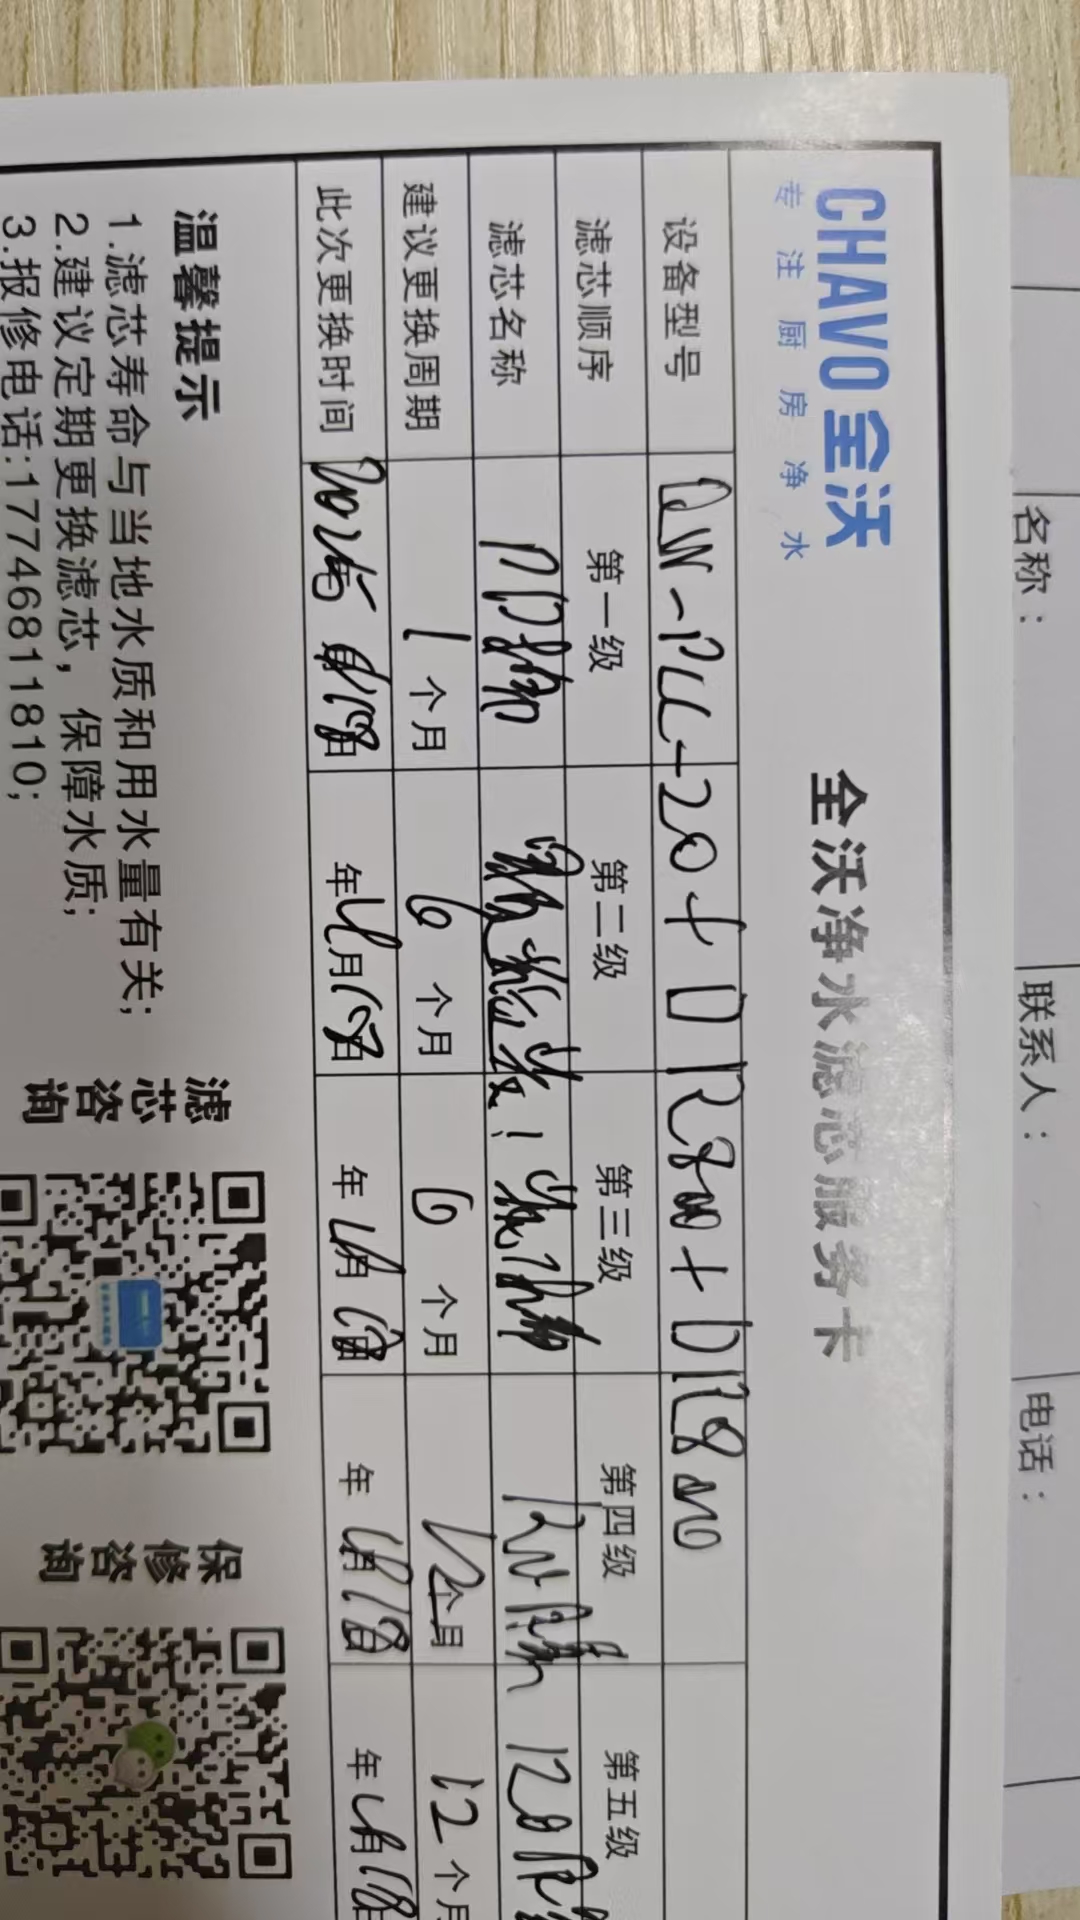 名称： 联系人： 电话：
CHAVO 全沃
专注厨房净水
全沃净水滤芯服务卡
设备型号
滤芯顺序 第一级 第二级 第三级 第四级 第五级
滤芯名称
建议更换周期 1个月 6个月 6个月 12个月 12个月
此次更换时间 年4月18日 年4月18日 年4月18日 年4月18
温馨提示
1.滤芯寿命与当地水质和用水量有关;
2.建议定期更换滤芯，保障水质;
3.报修电话:17746811810;
滤芯咨询
保修咨询